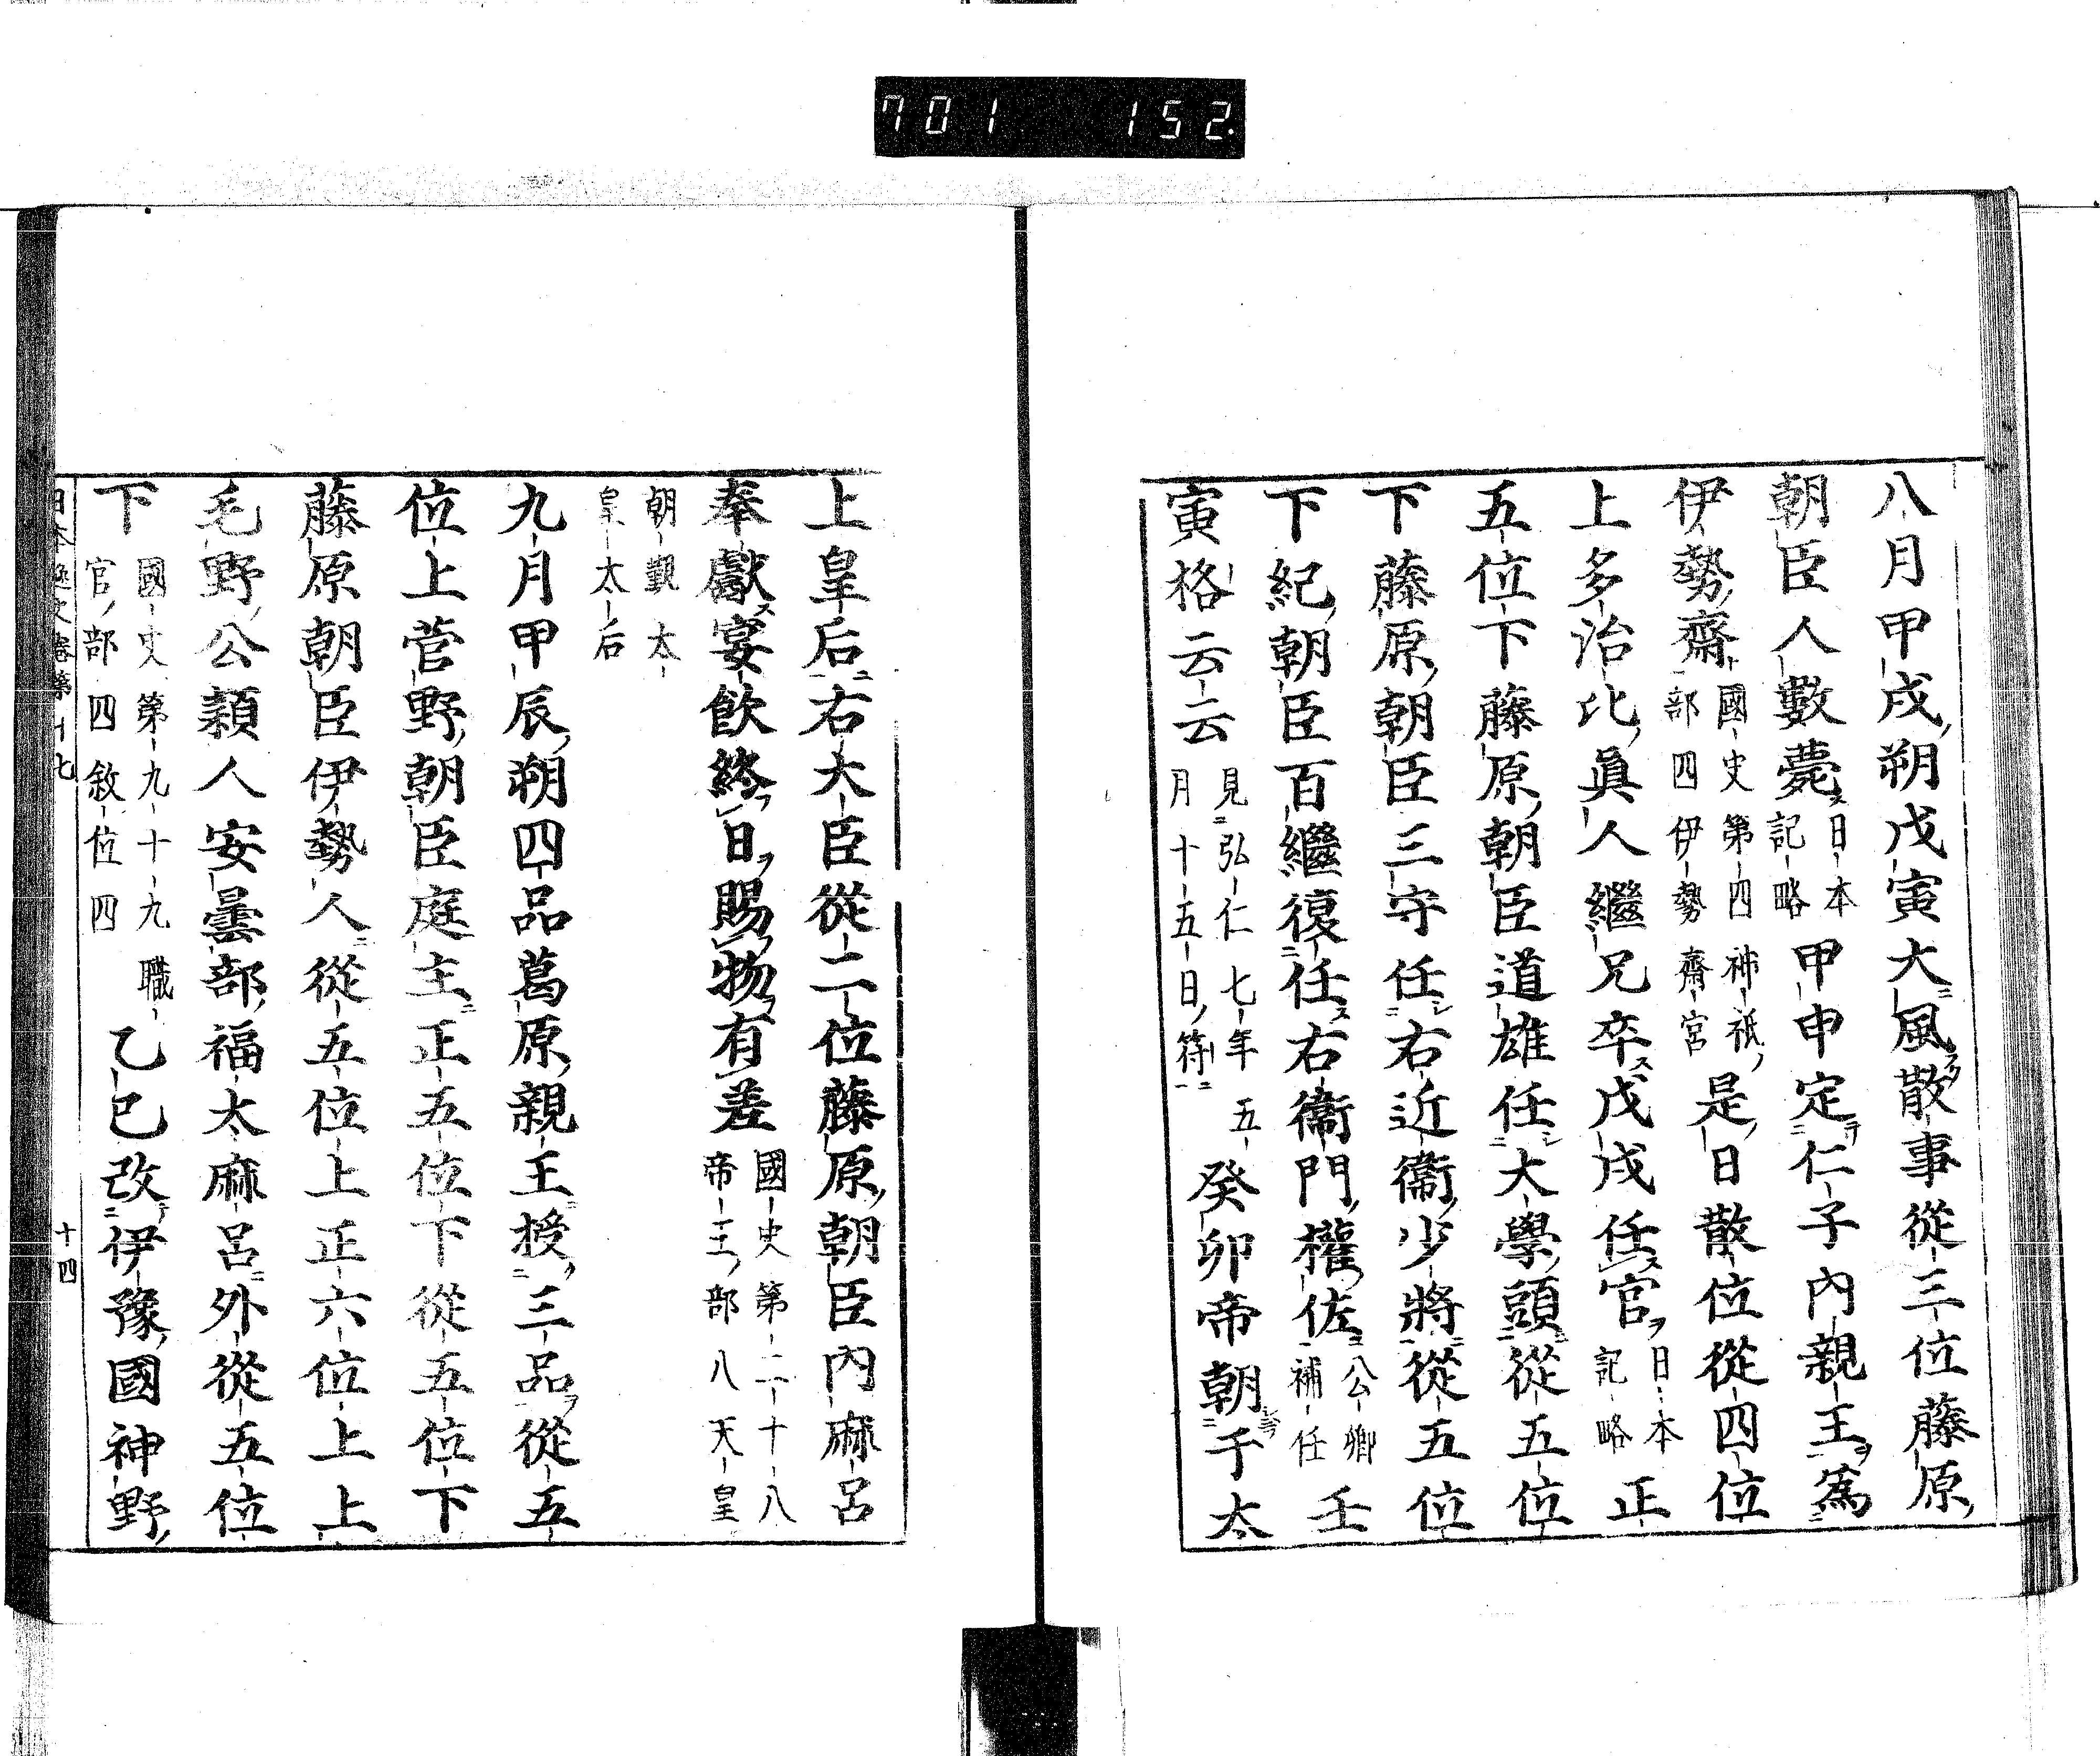 701 152.
八月甲戌朔戊寅大風散事從三位藤原
朝臣人數薨日本記略甲申定仁子內親王爲
伊勢齋國史第四神祇部四伊勢齋宮是日散位從四位
上多治比眞人繼兄卒戊戌任官日本記略正
五位下藤原朝臣道雄任大學頭從五位
下藤原朝臣三守任右近衞少將從五位
下紀朝臣百繼復任右衞門權佐公卿補任壬
寅格云云見弘仁七年五月十五日符癸卯帝朝于太
上皇后右大臣從二位藤原朝臣內麻呂
奉獻宴飲終日賜物有差國史第二十八帝王部八天皇
朝覲太皇太后
九月甲辰朔四品葛原親王授三品從五
位上菅野朝臣庭主正五位下從五位下
藤原朝臣伊勢人從五位上正六位上上
毛野公穎人安曇部福太麻呂外從五位
下國史第九十九職官部四敘位四乙巳改伊豫國神野
日本逸史卷第十七 十四